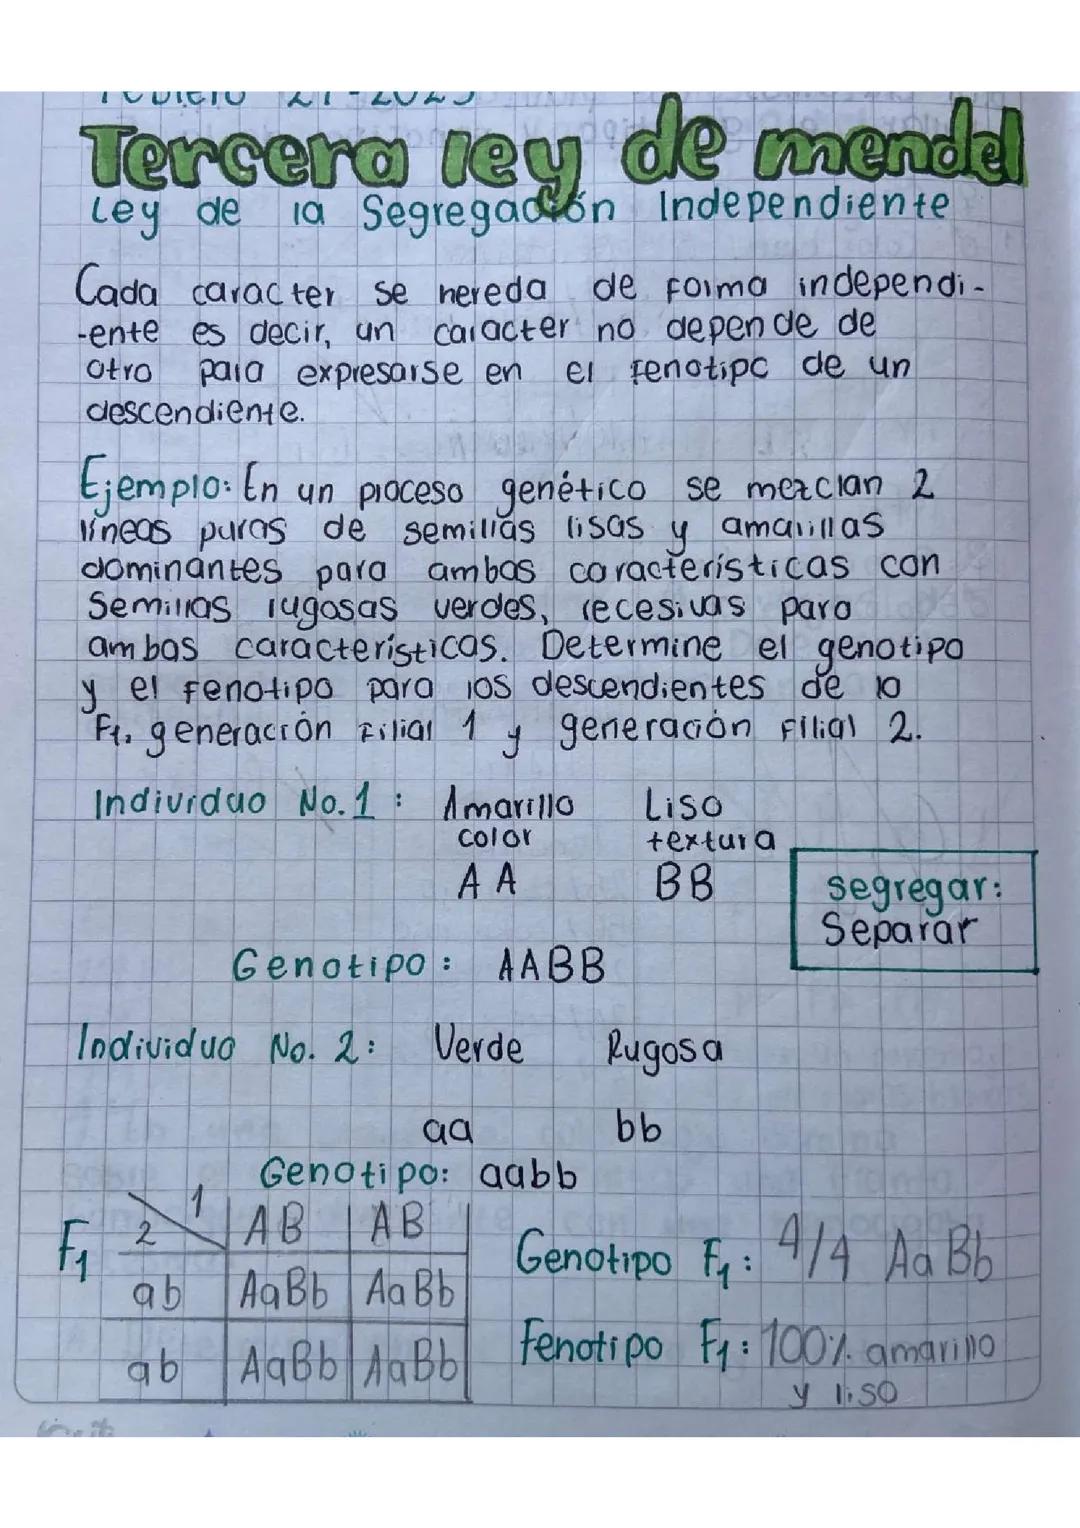 Tercera ley de mendel
Ley de la Segregación Independiente
Cada caracter se hereda de forma independi-
-ente es decir, un caracter no depende de
otro para expresarse en el fenotipo de un
descendiente.
Ejemplo: En un proceso genético se mezclan 2
líneas puras de semillas lisas y amarillas
dominantes para ambas características con
Semillas rugosas verdes, recesivas para
ambas características. Determine el genotipo
y el fenotipo para los descendientes de lo
F1, generación Filial 1 y generación Filial 2.
Individuo No. 1 : Amarillo Liso
color textura
A A BB
segregar:
Separar
Genotipo : AABB
Individuo No. 2 : Verde Rugosa
aa bb
Genotipo: aabb
F1 2 1 AB AB
ab AaBb AaBb
ab AaBb AaBb
Genotipo F1 : 4/4 AaBb
Fenotipo F1 : 100% amarillo
y liso